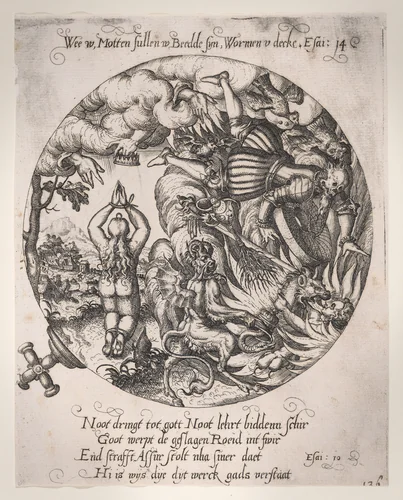 Wee w, Motten sullen w Bedde syn, Wormen v decke. Esai: 14
Noot dringt tot gott Noot lehrt biddenn sehir
Goot werpt de gslagen Roeid int fwir
End strafft Assur stolt nha siner daet
Esai: 10
Hi is wys dye dyt werck gads verstaat